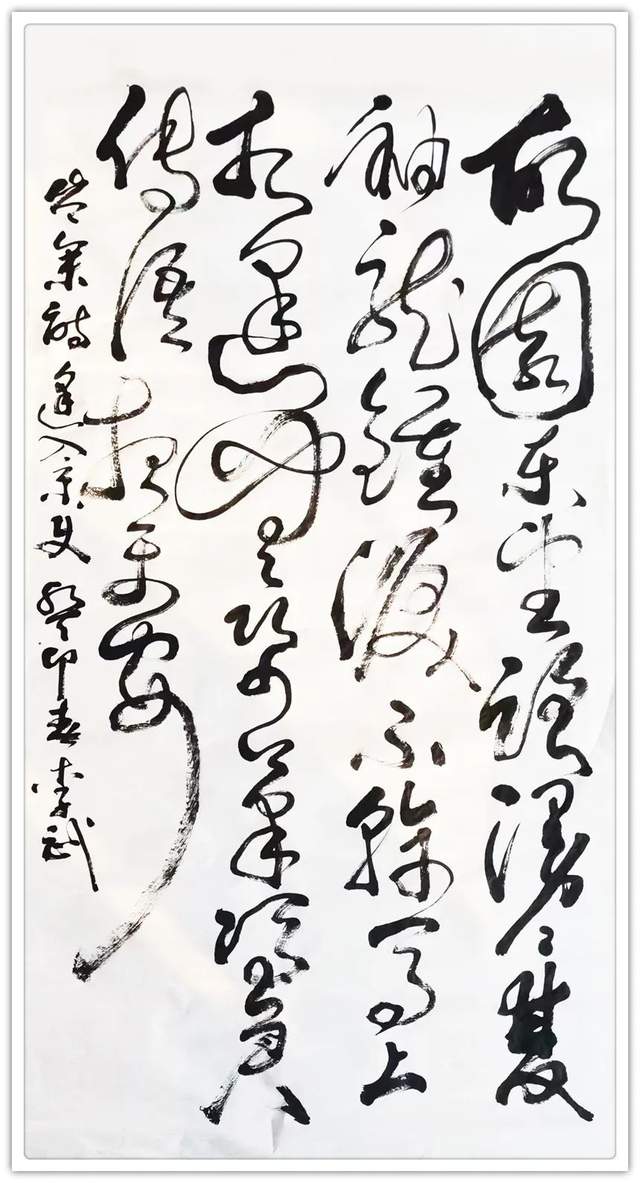 故園東望路漫〻雙
袖龍鐘淚不乾馬上
相逢無紙筆憑君
傳語報平安
岑參詩逢入京使 癸卯春李武